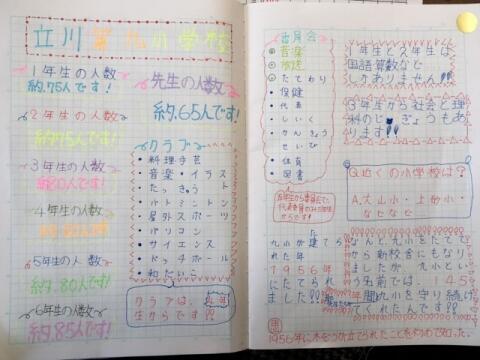 立川第九小学校
1年生の人数
約.75人です!
2年生の人数
約75人です!
3年生の人数
約80人です!
4年生の人数
5年生の人数
約.80人です!
6年生の人数
約.85人です!
先生の人数
約.65人です!
クラブ
・料理手芸
・音楽・イラスト
・たっきゅう
・バトミントン
・屋外スポーツ
・パソコン
・サイエンス
・ドッチボール
・和だいこ
クラブは、4年
生からです!!
委員会
音楽
放送
たてわり
・保健
・代表
・しいく
・かんきょう
・せいび
・体育
・図書
5年生から委員会で、
からです!
1年生と2年生は
国語算数など
しかありません!!
3年生から社会と理
科のじゅぎょうもあ
ります!!
Q.近くの小学校は?
A.大山小・上砂小・
などなど
九小が建てら
れた年
1956年
にたてられ
ました!!
なんと、九小をたてて
から新校舎にもなり
ましたが九小とい
う名前では、145
年間九小を守り続け
てくれたんです!!
1956年に木をつかって立てられたことを